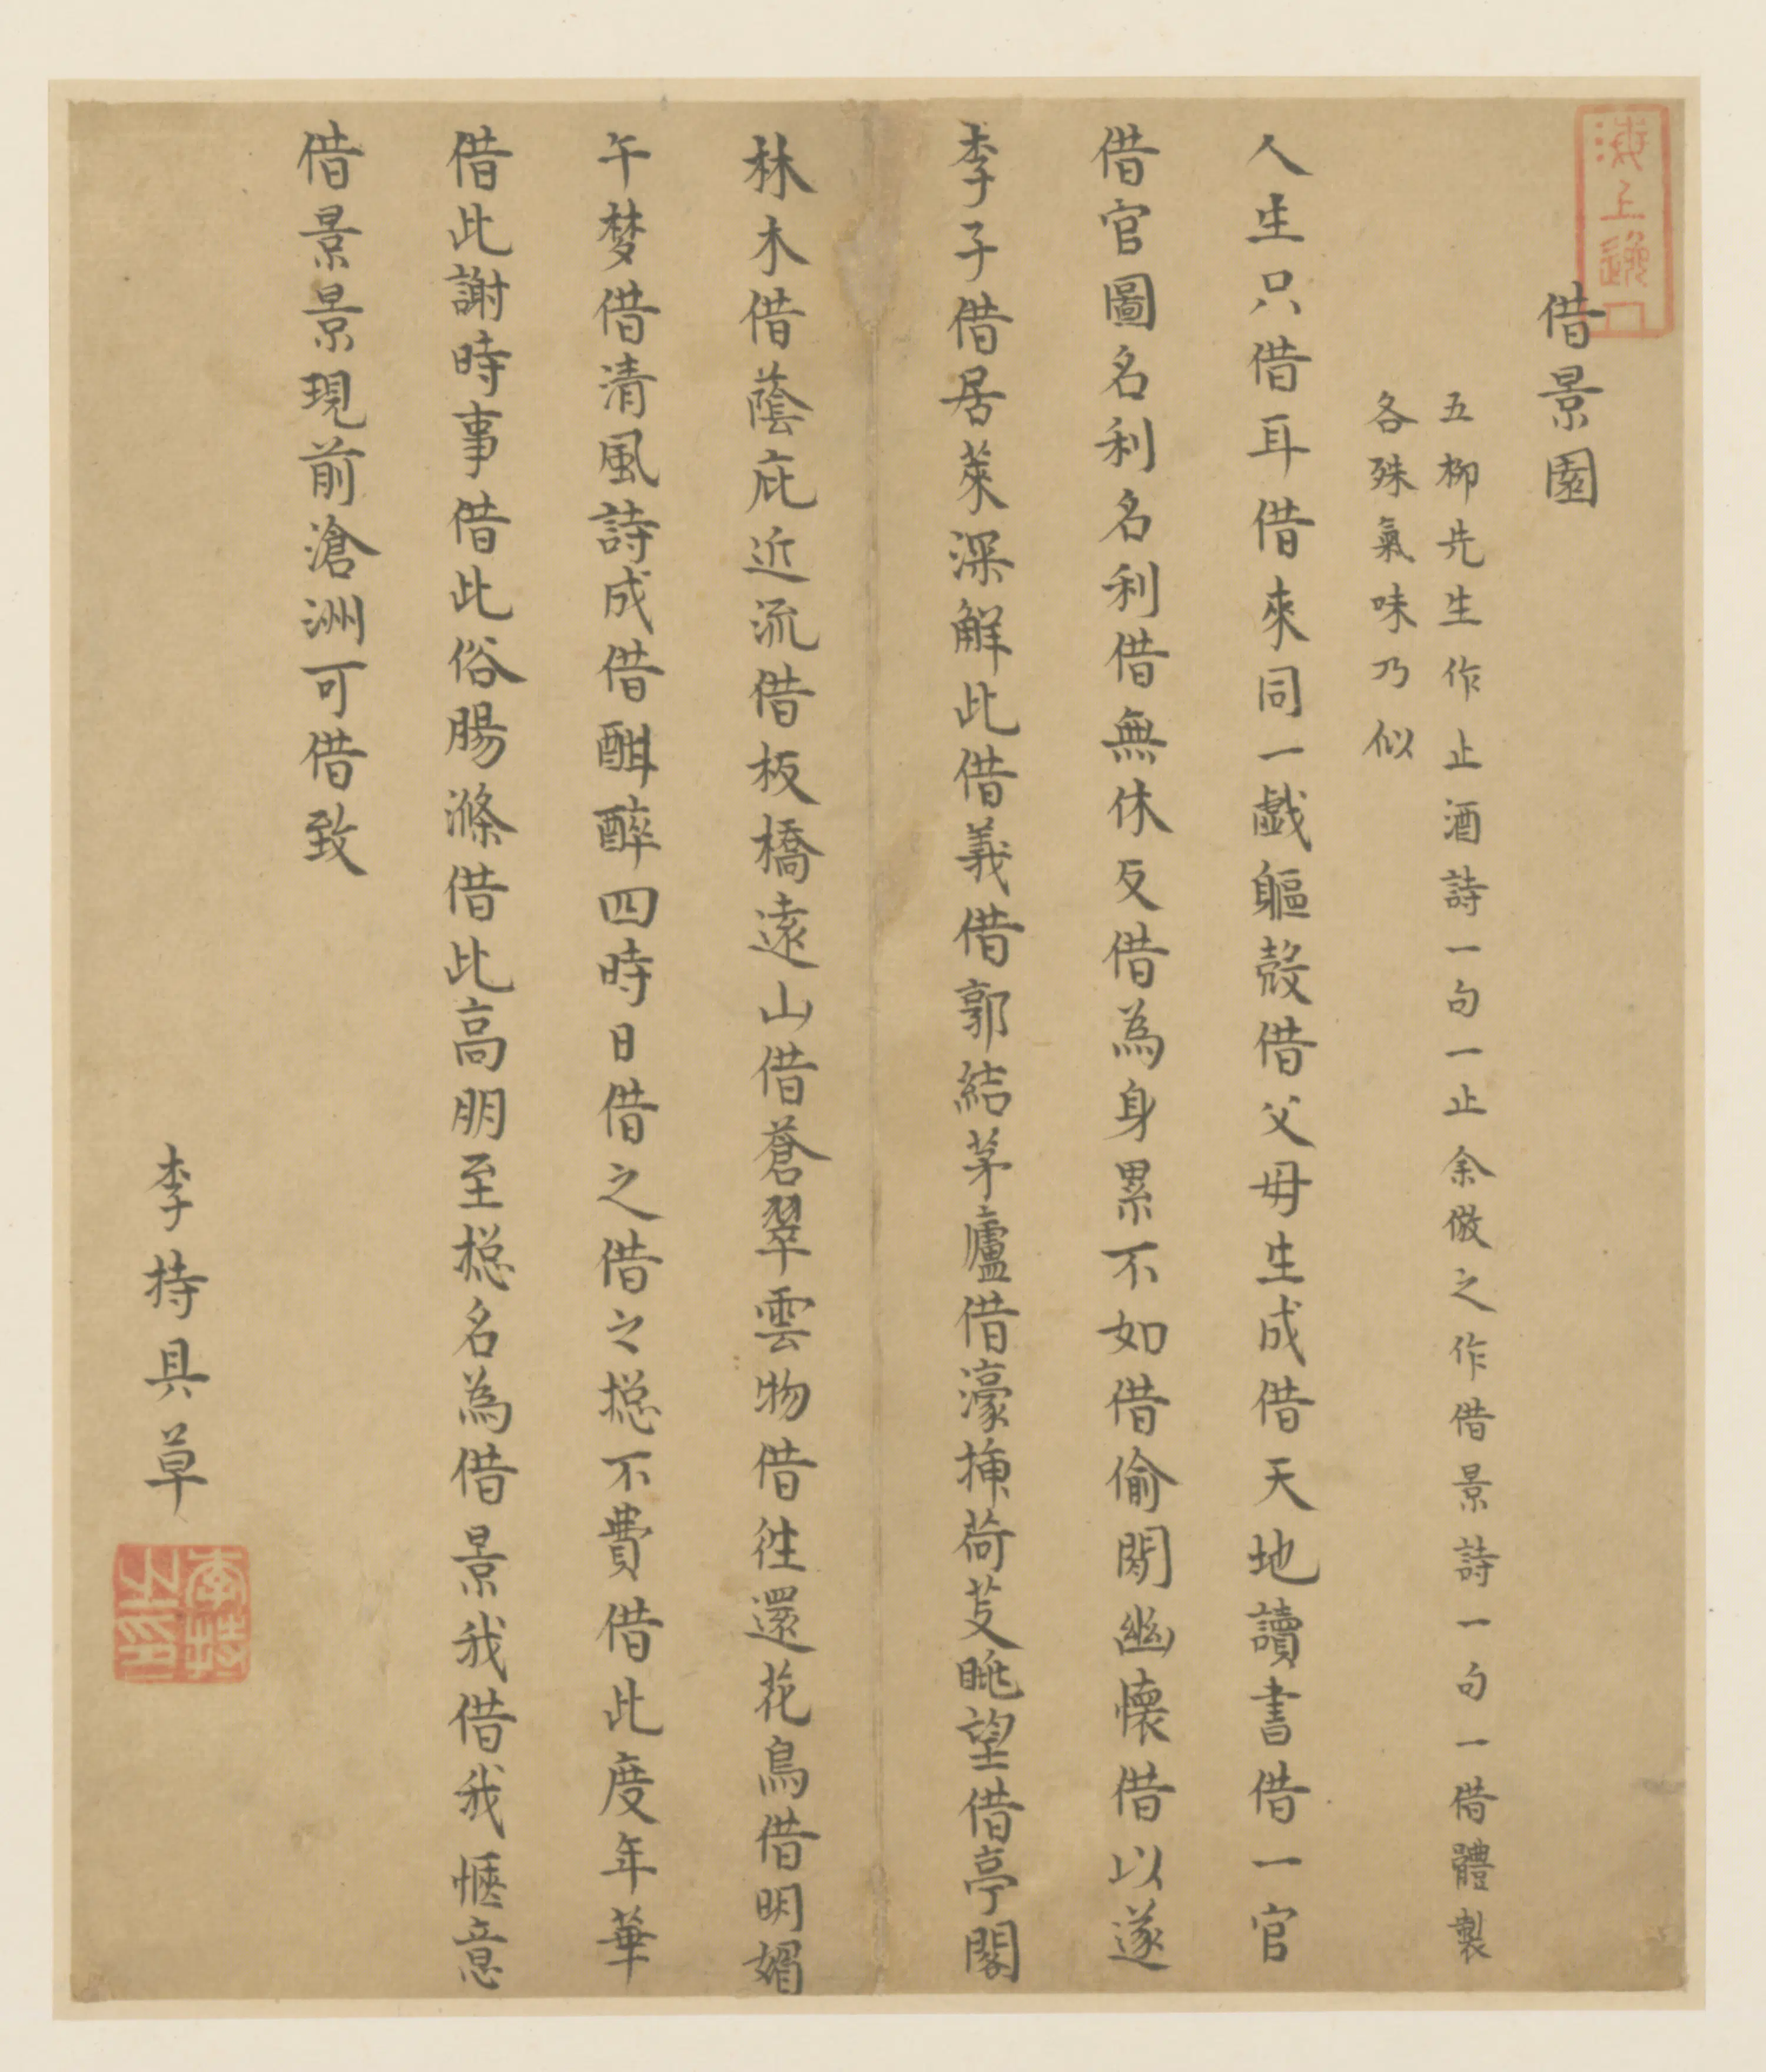 借景園
五柳先生作止酒詩一句一止余倣之作借景詩一句一借體製
各殊氣味乃似
人生只借耳借來同一戯軀殼借父母生成借天地讀書借一官
借官圖名利名利借無休反借為身累不如借偷閒幽懷借以遂
李子借居萊深解此借義借郭結茅廬借濠插荷芰眺望借亭閣
林木借蔭庇近流借板橋遠山借蒼翠雲物借往還花鳥借明媚
午梦借清風詩成借酣醉四時日借之借之揔不費借此度年華
借此謝時事借此俗腸滌借比高朋至揔名為借景我借我愜意
借景景現前滄洲可借致
李持具草
李持之印